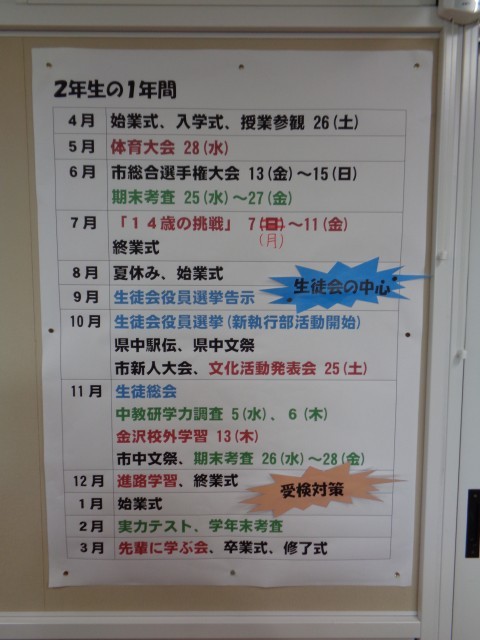 2年生の1年間
4月 始業式、入学式、授業参観 26(土)
5月 体育大会 28(水)
6月 市総合選手権大会 13(金)～15(日)
期末考査 25(水)～27(金)
7月 「14歳の挑戦」 7(日)～11(金)
(月)
終業式
8月 夏休み、始業式
生徒会の中心
9月 生徒会役員選挙告示
10月 生徒会役員選挙(新執行部活動開始)
県中駅伝、県中文祭
市新人大会、文化活動発表会 25(土)
11月 生徒総会
中教研学力調査 5(水)、6(木)
金沢校外学習 13(木)
市中文祭、期末考査 26(水)～28(金)
12月 進路学習、終業式
受検対策
1月 始業式
2月 実力テスト、学年末考査
3月 先輩に学ぶ会、卒業式、修了式